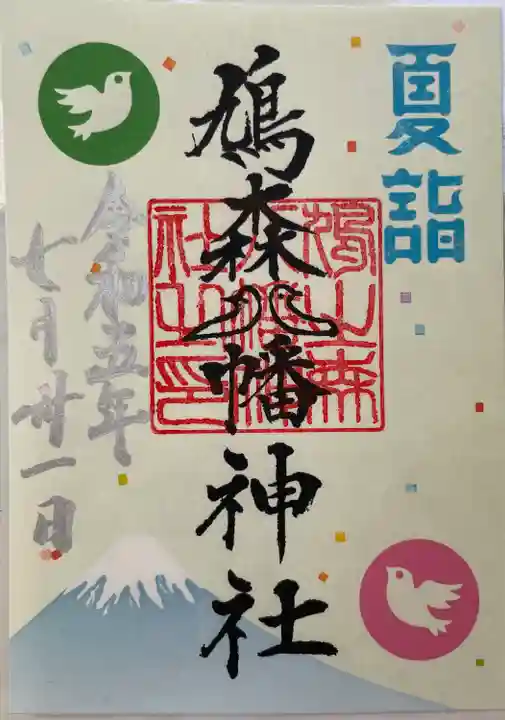 夏詣
鳩森八幡神社
鳩之森
八幡神
社之印
令和五年
七月卅一日